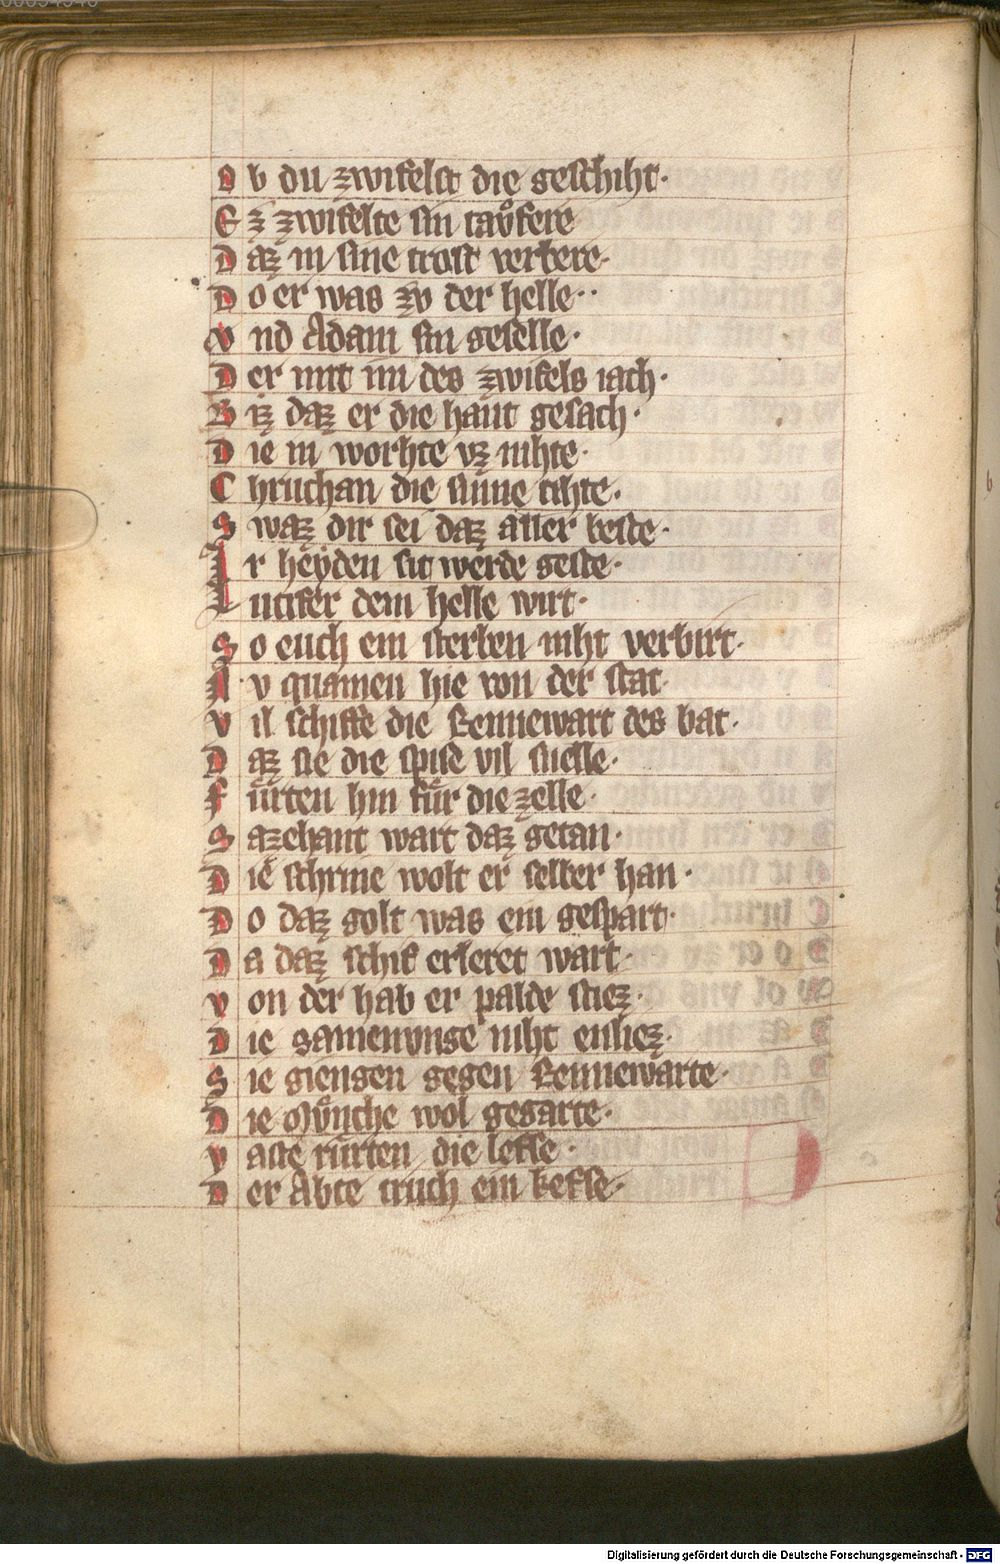 O b du zwifelst die geschiht·
E z zwifelte sin taͧfere
D az in sine trost verbere·
D o er was zv der helle··
v nd Adam sin geselle·
D er mit im des zwifels iach·
B iz daz er die haut gesach·
D ie in worhte vz nihte·
C hruchan die sunne tihte·
S waz dir sei daz aller beste·
I r heyden sit werde geste·
L ucifer dem helle wirt·
S o euch ein sterben niht verbirt·
N v quamen hie von der stat·
v il schiffe die Rennewart des bat·
D az sie die spise vil snelle·
F urten hin fur die zelle·
S azehant wart daz getan·
D ie schrine wolt er selber han·
D o daz golt was ein gespart·
D a daz schif erleret wart·
v on der hab er palde stiez·
D ie samenvnge niht enliez·
S ie giengen gegen Rennewarte·
D ie Mvͤnche wol gegarte·
v aste rurten die lefse·
D er Abte truch ein kefse·
Digitalisierung gefördert durch die Deutsche Forschungsgemeinschaft - DFG